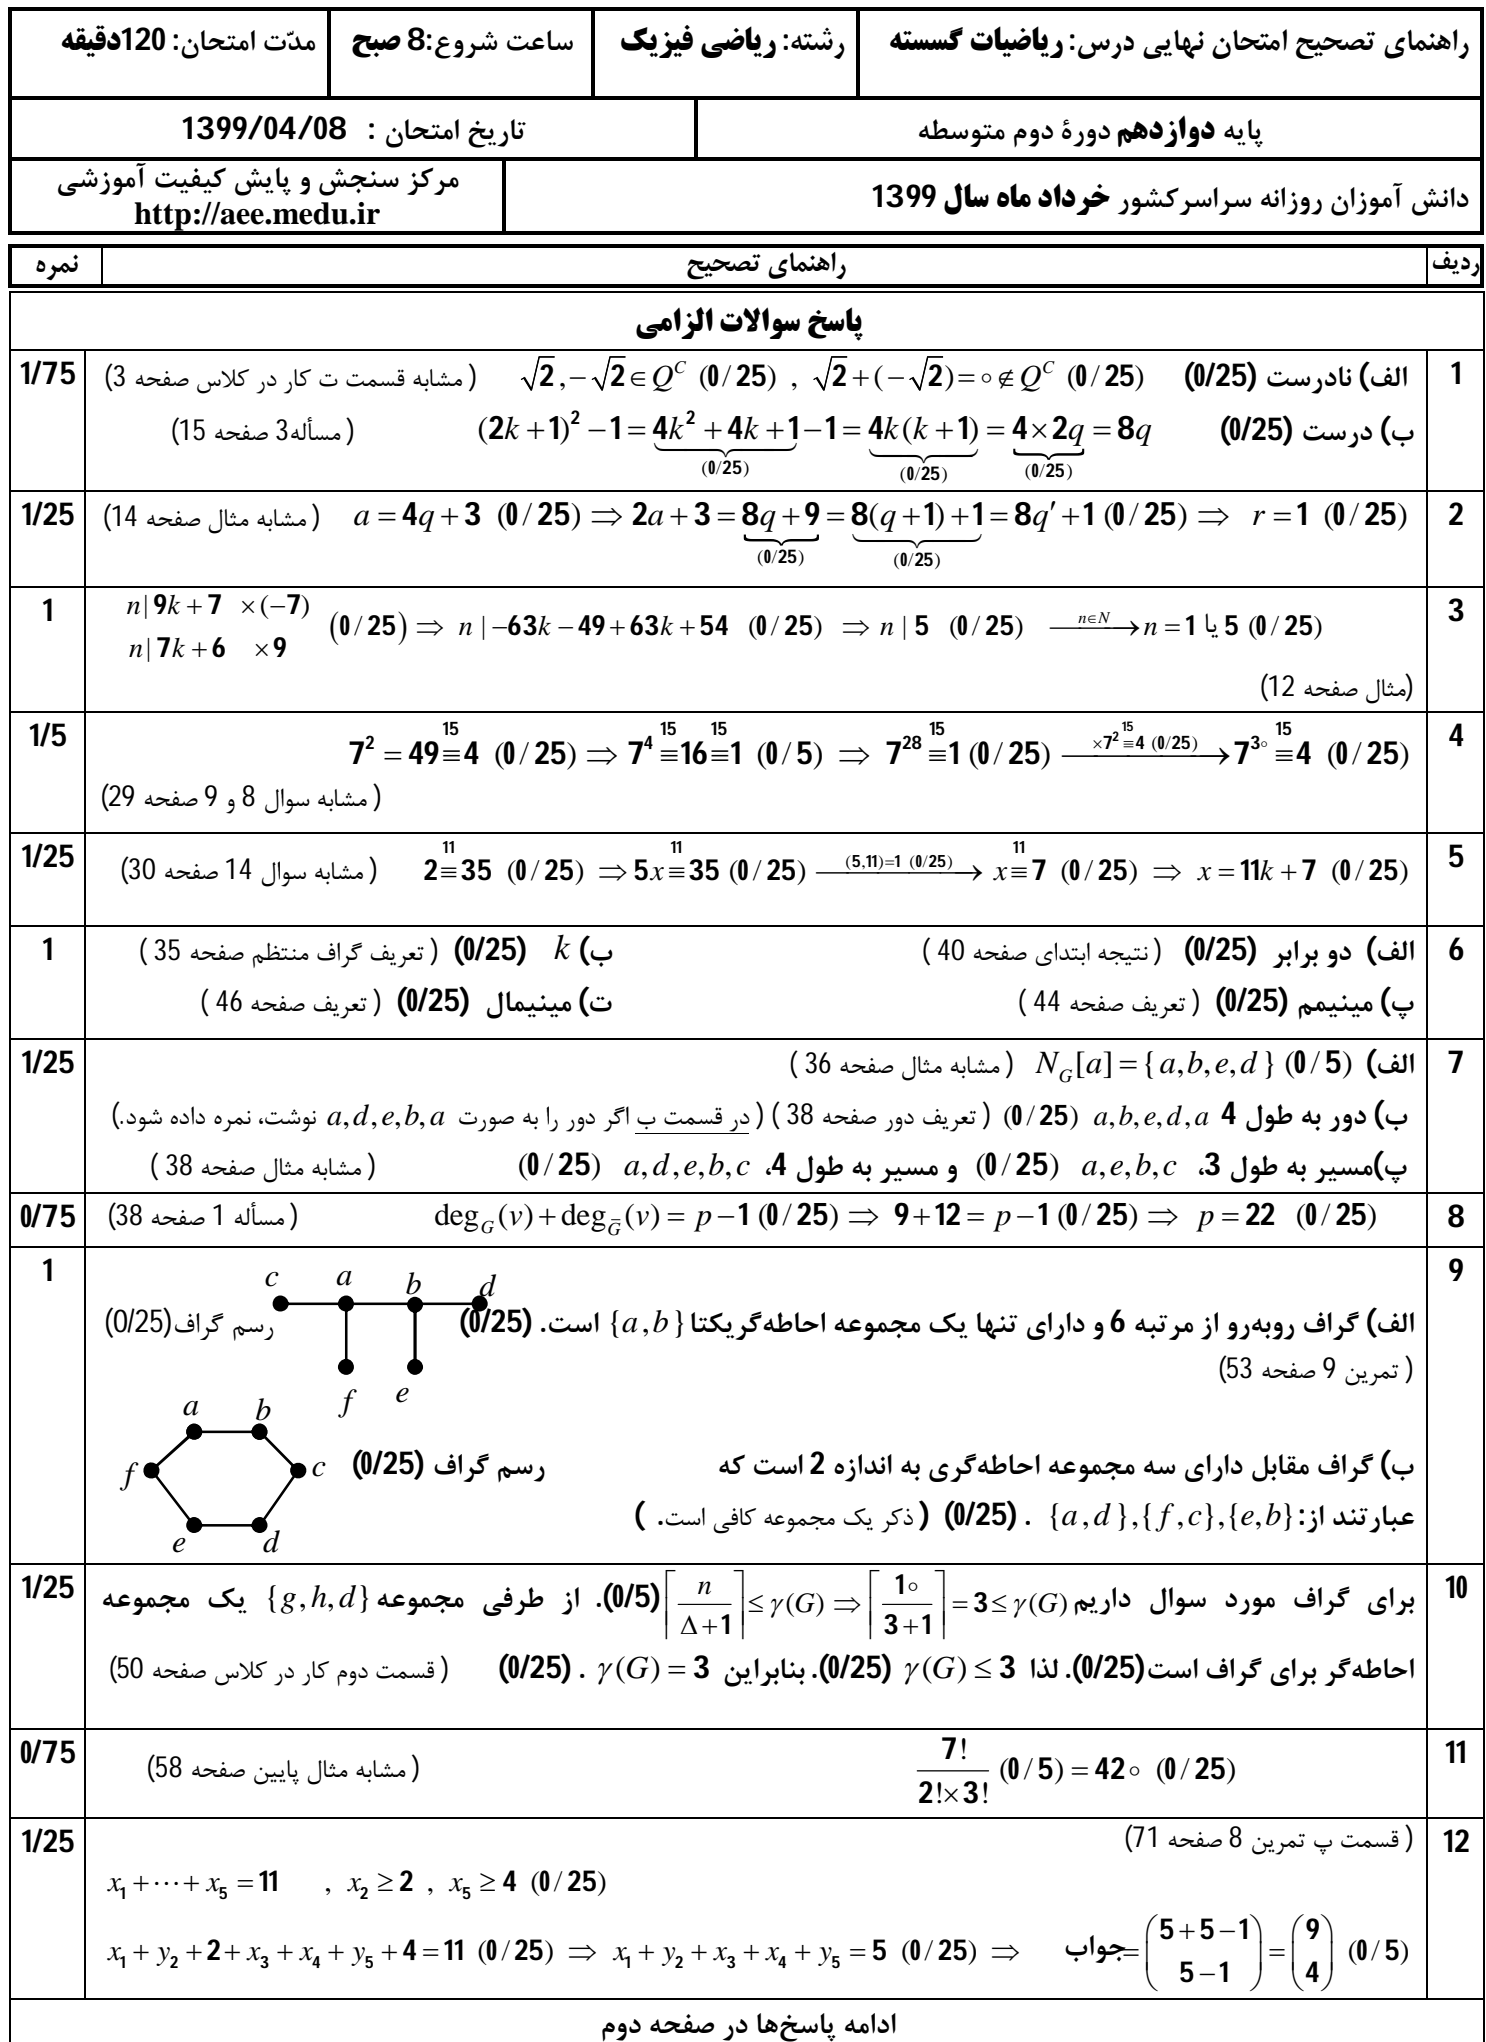 راهنمای تصحیح امتحان نهایی درس: ریاضیات گسسته
رشته: ریاضی فیزیک
ساعت شروع:8 صبح
مدّت امتحان: 120دقیقه
پایه دوازدهم دورهٔ دوم متوسطه
تاریخ امتحان : 1399/04/08
دانش آموزان روزانه سراسرکشور خرداد ماه سال 1399
مرکز سنجش و پایش کیفیت آموزشی
http://aee.medu.ir
ردیف راهنمای تصحیح نمره
پاسخ سوالات الزامی
1 الف) نادرست (0/25) √2 , −√2 ∈ Q^C (0/25) , √2 + (−√2) = 0 ∉ Q^C (0/25) ( مشابه قسمت ت کار در کلاس صفحه 3) 1/75
ب) درست (0/25) (2k + 1)² − 1 = 4k² + 4k + 1 − 1 = 4k(k + 1) = 4 × 2q = 8q ( مسأله3 صفحه 15)
(0/25) (0/25) (0/25)
2 a = 4q + 3 (0/25) ⇒ 2a + 3 = 8q + 9 = 8(q + 1) + 1 = 8q′ + 1 (0/25) ⇒ r = 1 (0/25) ( مشابه مثال صفحه 14) 1/25
(0/25) (0/25)
3 n | 9k + 7 ×(−7) 1
n | 7k + 6 ×9 (0/25) ⇒ n | −63k − 49 + 63k + 54 (0/25) ⇒ n | 5 (0/25) —n∈N→ n = 1 یا 5 (0/25)
(مثال صفحه 12)
4 7² = 49 ≡¹⁵ 4 (0/25) ⇒ 7⁴ ≡¹⁵ 16 ≡¹⁵ 1 (0/5) ⇒ 7²⁸ ≡¹⁵ 1 (0/25) —×7² ≡¹⁵ 4 (0/25)→ 7³⁰ ≡¹⁵ 4 (0/25) 1/5
( مشابه سوال 8 و 9 صفحه 29)
5 2 ≡¹¹ 35 (0/25) ⇒ 5x ≡¹¹ 35 (0/25) —(5,11)=1 (0/25)→ x ≡¹¹ 7 (0/25) ⇒ x = 11k + 7 (0/25) ( مشابه سوال 14 صفحه 30) 1/25
6 الف) دو برابر (0/25) ( نتیجه ابتدای صفحه 40 ) ب) k (0/25) ( تعریف گراف منتظم صفحه 35 ) 1
پ) مینیمم (0/25) ( تعریف صفحه 44 ) ت) مینیمال (0/25) ( تعریف صفحه 46 )
7 الف) N_G[a] = { a,b,e,d } (0/5) ( مشابه مثال صفحه 36 ) 1/25
ب) دور به طول 4 a,b,e,d,a (0/25) ( تعریف دور صفحه 38 ) ( در قسمت ب اگر دور را به صورت a,d,e,b,a نوشت، نمره داده شود.)
پ)مسیر به طول 3، a,e,b,c (0/25) و مسیر به طول 4، a,d,e,b,c (0/25) ( مشابه مثال صفحه 38 )
8 deg_G(v) + deg_Ḡ(v) = p − 1 (0/25) ⇒ 9 + 12 = p − 1 (0/25) ⇒ p = 22 (0/25) ( مسأله 1 صفحه 38) 0/75
9 1
c a b d
الف) گراف روبه‌رو از مرتبه 6 و دارای تنها یک مجموعه احاطه‌گریکتا {a,b} است. (0/25) رسم گراف(0/25)
( تمرین 9 صفحه 53)
f e
a b
ب) گراف مقابل دارای سه مجموعه احاطه‌گری به اندازه 2 است که رسم گراف (0/25) c f
عبارتند از: {a,d},{f,c},{e,b} . (0/25) ( ذکر یک مجموعه کافی است. )
e d
10 برای گراف مورد سوال داریم ⌈n/(Δ+1)⌉ ≤ γ(G) ⇒ ⌈10/(3+1)⌉ = 3 ≤ γ(G) (0/5). از طرفی مجموعه {g,h,d} یک مجموعه 1/25
احاطه‌گر برای گراف است(0/25). لذا γ(G) ≤ 3 (0/25). بنابراین γ(G) = 3 . (0/25) ( قسمت دوم کار در کلاس صفحه 50)
11 7!/(2!×3!) (0/5) = 420 (0/25) ( مشابه مثال پایین صفحه 58) 0/75
12 ( قسمت پ تمرین 8 صفحه 71) 1/25
x₁ + ⋯ + x₅ = 11 , x₂ ≥ 2 , x₅ ≥ 4 (0/25)
x₁ + y₂ + 2 + x₃ + x₄ + y₅ + 4 = 11 (0/25) ⇒ x₁ + y₂ + x₃ + x₄ + y₅ = 5 (0/25) ⇒ جواب = (5+5−1 / 5−1) = (9 / 4) (0/5)
ادامه پاسخ‌ها در صفحه دوم